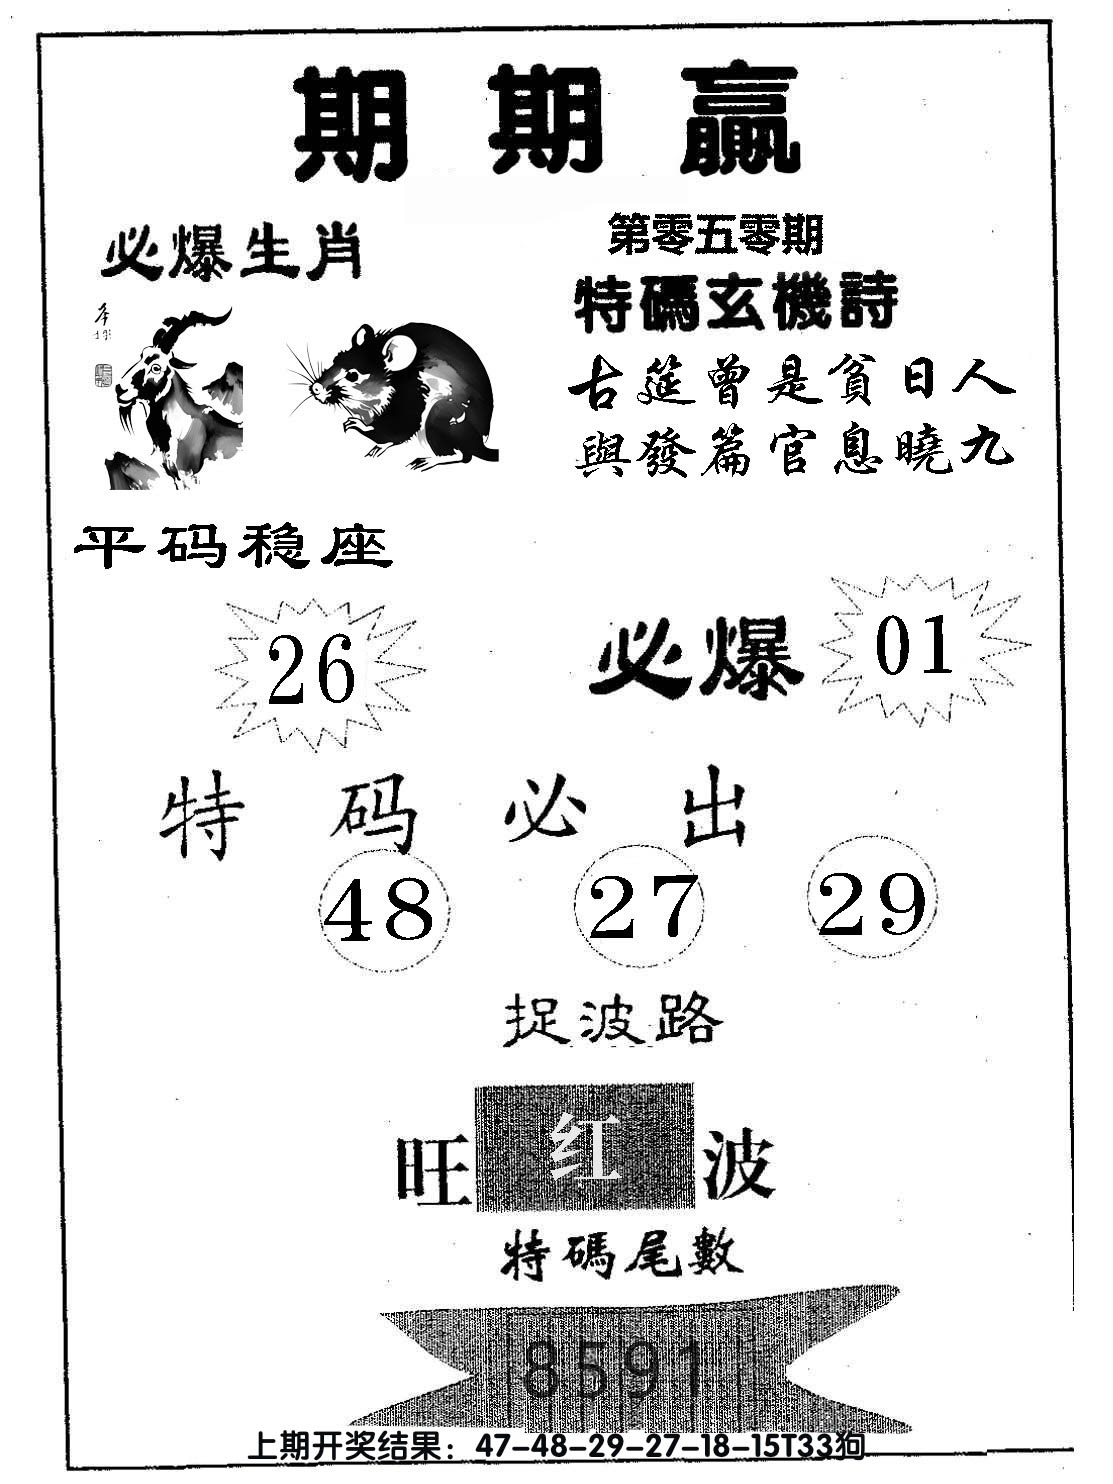 期期赢
必爆生肖
第零五零期
特碼玄機詩
古筵曾是貧日人
與發篇官息曉九
平码稳座
26
必爆
01
特码必出
48 27 29
捉波路
旺 红 波
特碼尾數
8591
上期开奖结果：47-48-29-27-18-15T33狗